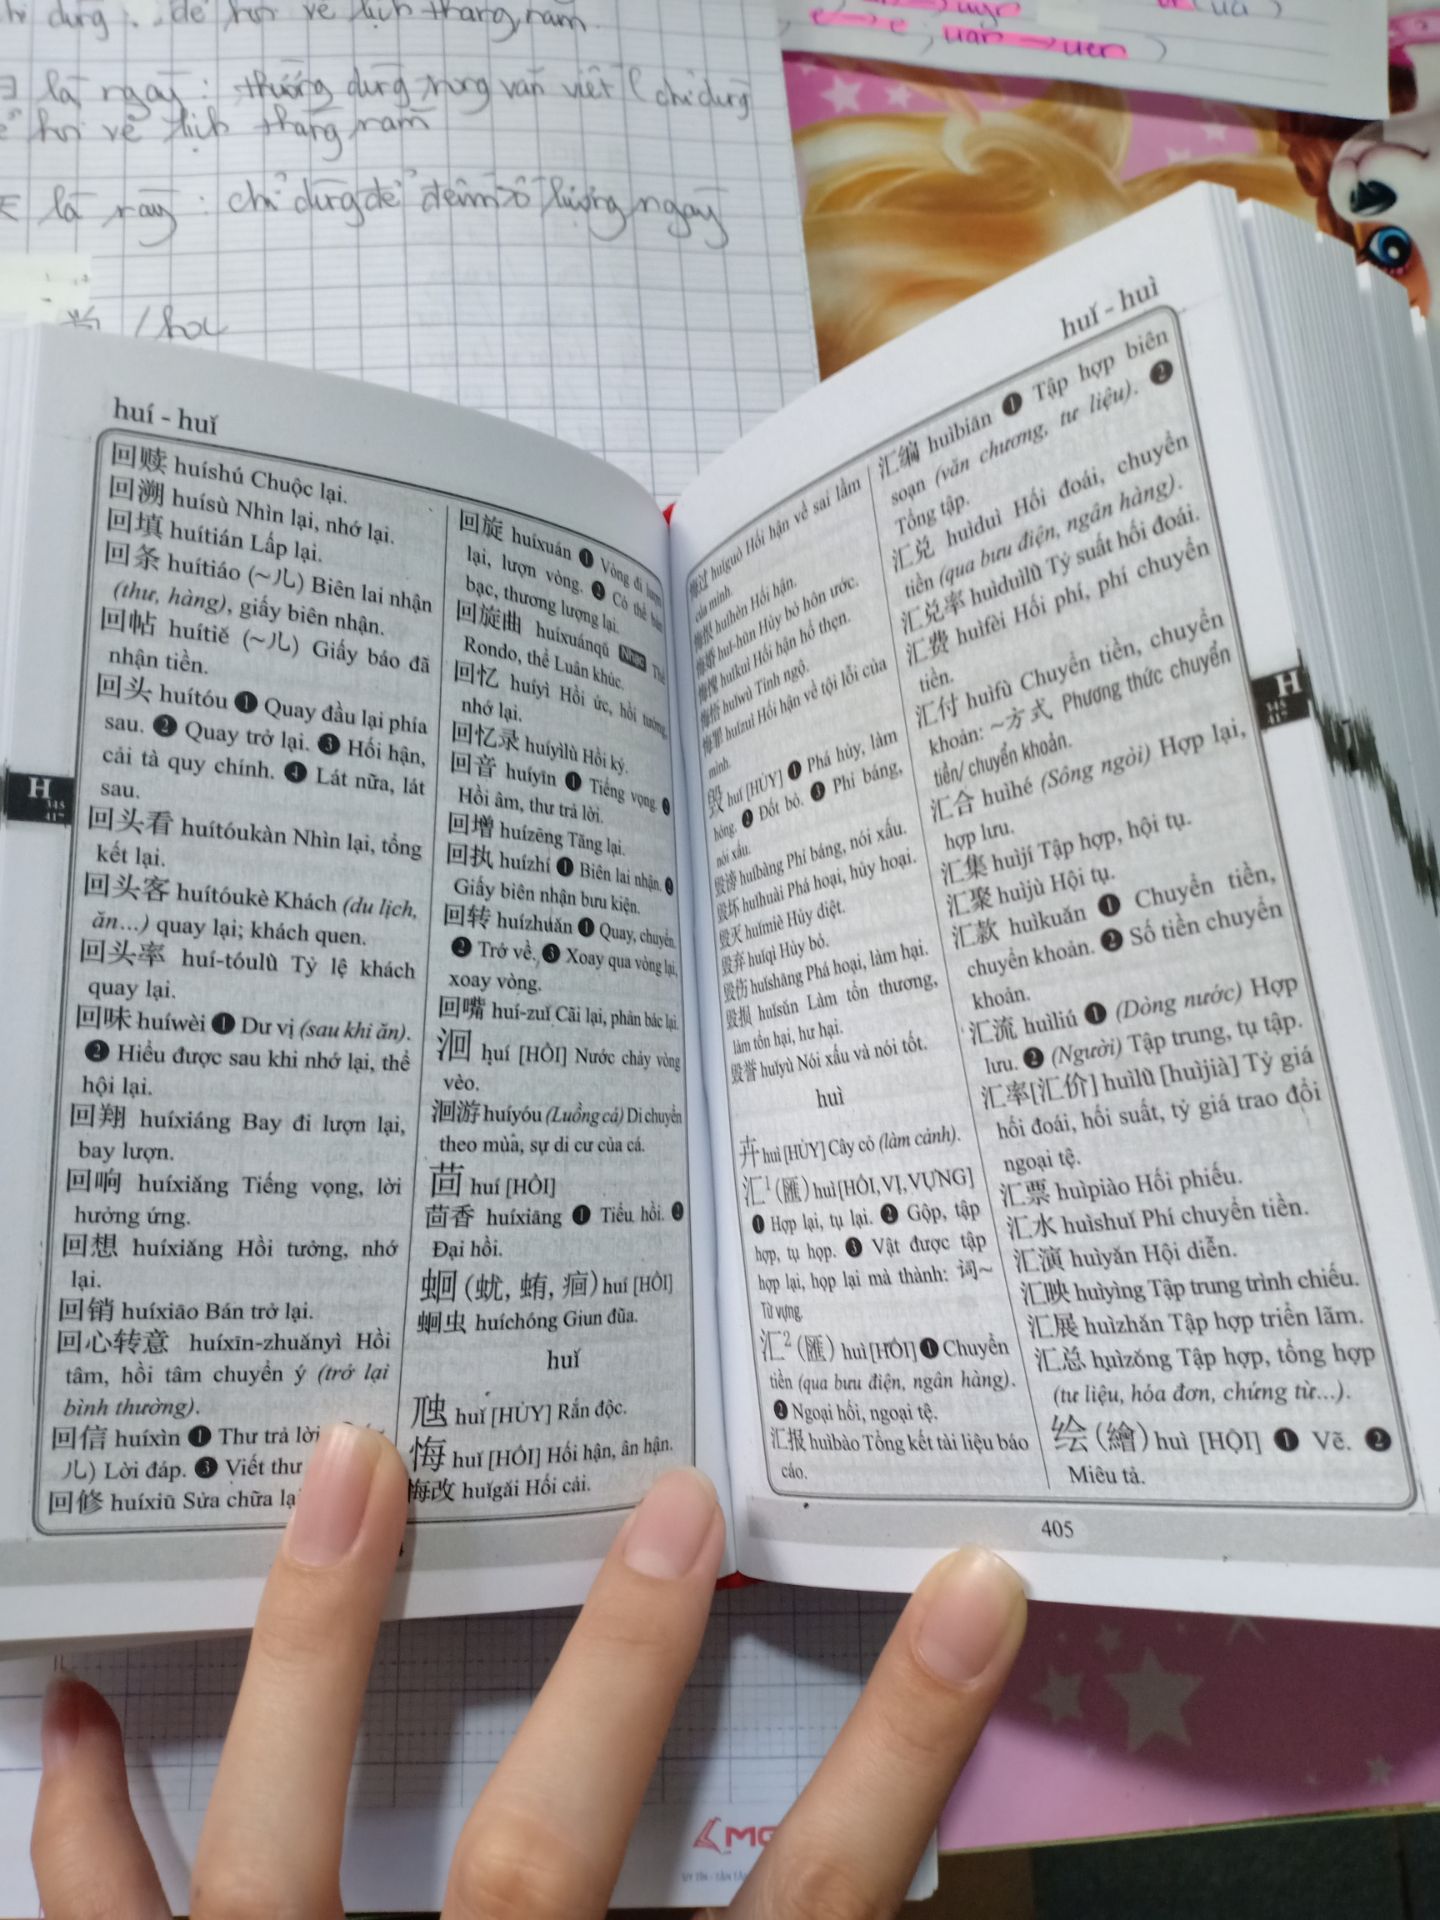 chỉ dùng : để hỏi về lịch tháng, năm
là ngày : thường dùng trong văn viết ( chỉ dùng
hỏi về lịch tháng năm
là ngày : chỉ dùng để đếm số lượng ngày
e → e , uan → uen )
huí - huǐ
回赎 huíshú Chuộc lại.
回溯 huísù Nhìn lại, nhớ lại.
回填 huítián Lấp lại.
回条 huítiáo (~儿) Biên lai nhận
(thư, hàng), giấy biên nhận.
回帖 huítiě (~儿) Giấy báo đã
nhận tiền.
回头 huítóu ❶ Quay đầu lại phía
sau. ❷ Quay trở lại. ❸ Hối hận,
cải tà quy chính. ❹ Lát nữa, lát
sau.
回头看 huítóukàn Nhìn lại, tổng
kết lại.
回头客 huítóukè Khách (du lịch,
ăn...) quay lại; khách quen.
回头率 huí-tóulǜ Tỷ lệ khách
quay lại.
回味 huíwèi ❶ Dư vị (sau khi ăn).
❷ Hiểu được sau khi nhớ lại, thể
hội lại.
回翔 huíxiáng Bay đi lượn lại,
bay lượn.
回响 huíxiǎng Tiếng vọng, lời
hưởng ứng.
回想 huíxiǎng Hồi tưởng, nhớ
lại.
回销 huíxiāo Bán trở lại.
回心转意 huíxīn-zhuǎnyì Hồi
tâm, hồi tâm chuyển ý (trở lại
bình thường).
回信 huíxìn ❶ Thư trả lời
儿) Lời đáp. ❸ Viết thư
回修 huíxiū Sửa chữa lại
回旋 huíxuán ❶ Vòng đi lượn
lại, lượn vòng. ❷ Có thể bàn
bạc, thương lượng lại.
回旋曲 huíxuánqǔ Nhạc Thể
Rondo, thể Luân khúc.
回忆 huíyì Hồi ức, hồi tưởng,
nhớ lại.
回忆录 huíyìlù Hồi ký.
回音 huíyīn ❶ Tiếng vọng. ❷
Hồi âm, thư trả lời.
回增 huízēng Tăng lại.
回执 huízhí ❶ Biên lai nhận. ❷
Giấy biên nhận bưu kiện.
回转 huízhuǎn ❶ Quay, chuyển.
❷ Trở về. ❸ Xoay qua vòng lại,
xoay vòng.
回嘴 huí-zuǐ Cãi lại, phản bác lại.
洄 huí [HỒI] Nước chảy vòng
vèo.
洄游 huíyóu (Luồng cá) Di chuyển
theo mùa, sự di cư của cá.
茴 huí [HỒI]
茴香 huíxiāng ❶ Tiểu hồi. ❷
Đại hồi.
蛔 (蚘, 蛕, 痐) huí [HỒI]
蛔虫 huíchóng Giun đũa.
huǐ
虺 huǐ [HỦY] Rắn độc.
悔 huǐ [HỐI] Hối hận, ân hận.
悔改 huǐgǎi Hối cải.
H
345
417
huǐ - huì
悔过 huǐguò Hối hận về sai lầm
của mình.
悔恨 huǐhèn Hối hận.
悔婚 huǐ-hūn Hủy bỏ hôn ước.
悔愧 huǐkuì Hối hận hổ thẹn.
悔悟 huǐwù Tỉnh ngộ.
悔罪 huǐzuì Hối hận về tội lỗi của
mình.
毁 huǐ [HỦY] ❶ Phá hủy, làm
hỏng. ❷ Đốt bỏ. ❸ Phỉ báng,
nói xấu.
毁谤 huǐbàng Phỉ báng, nói xấu.
毁坏 huǐhuài Phá hoại, hủy hoại.
毁灭 huǐmiè Hủy diệt.
毁弃 huǐqì Hủy bỏ.
毁伤 huǐshāng Phá hoại, làm hại.
毁损 huǐsǔn Làm tổn thương,
làm tổn hại, hư hại.
毁誉 huǐyù Nói xấu và nói tốt.
huì
卉 huì [HỦY] Cây cỏ (làm cảnh).
汇¹ (匯) huì [HỐI, VỊ, VỰNG]
❶ Hợp lại, tụ lại. ❷ Gộp, tập
hợp, tụ họp. ❸ Vật được tập
hợp lại, họp lại mà thành: 词~
Từ vựng.
汇² (匯) huì [HỐI] ❶ Chuyển
tiền (qua bưu điện, ngân hàng).
❷ Ngoại hối, ngoại tệ.
汇报 huìbào Tổng kết tài liệu báo
cáo.
汇编 huìbiān ❶ Tập hợp biên
soạn (văn chương, tư liệu). ❷
Tổng tập.
汇兑 huìduì Hối đoái, chuyển
tiền (qua bưu điện, ngân hàng).
汇兑率 huìduìlǜ Tỷ suất hối đoái.
汇费 huìfèi Hối phí, phí chuyển
tiền.
汇付 huìfù Chuyển tiền, chuyển
khoản: ~方式 Phương thức chuyển
tiền/ chuyển khoản.
汇合 huìhé (Sông ngòi) Hợp lại,
hợp lưu.
汇集 huìjí Tập hợp, hội tụ.
汇聚 huìjù Hội tụ.
汇款 huìkuǎn ❶ Chuyển tiền,
chuyển khoản. ❷ Số tiền chuyển
khoản.
汇流 huìliú ❶ (Dòng nước) Hợp
lưu. ❷ (Người) Tập trung, tụ tập.
汇率[汇价] huìlǜ [huìjià] Tỷ giá
hối đoái, hối suất, tỷ giá trao đổi
ngoại tệ.
汇票 huìpiào Hối phiếu.
汇水 huìshuǐ Phí chuyển tiền.
汇演 huìyǎn Hội diễn.
汇映 huìyìng Tập trung trình chiếu.
汇展 huìzhǎn Tập hợp triển lãm.
汇总 huìzǒng Tập hợp, tổng hợp
(tư liệu, hóa đơn, chứng từ...).
绘 (繪) huì [HỘI] ❶ Vẽ. ❷
Miêu tả.
H
345
417
405